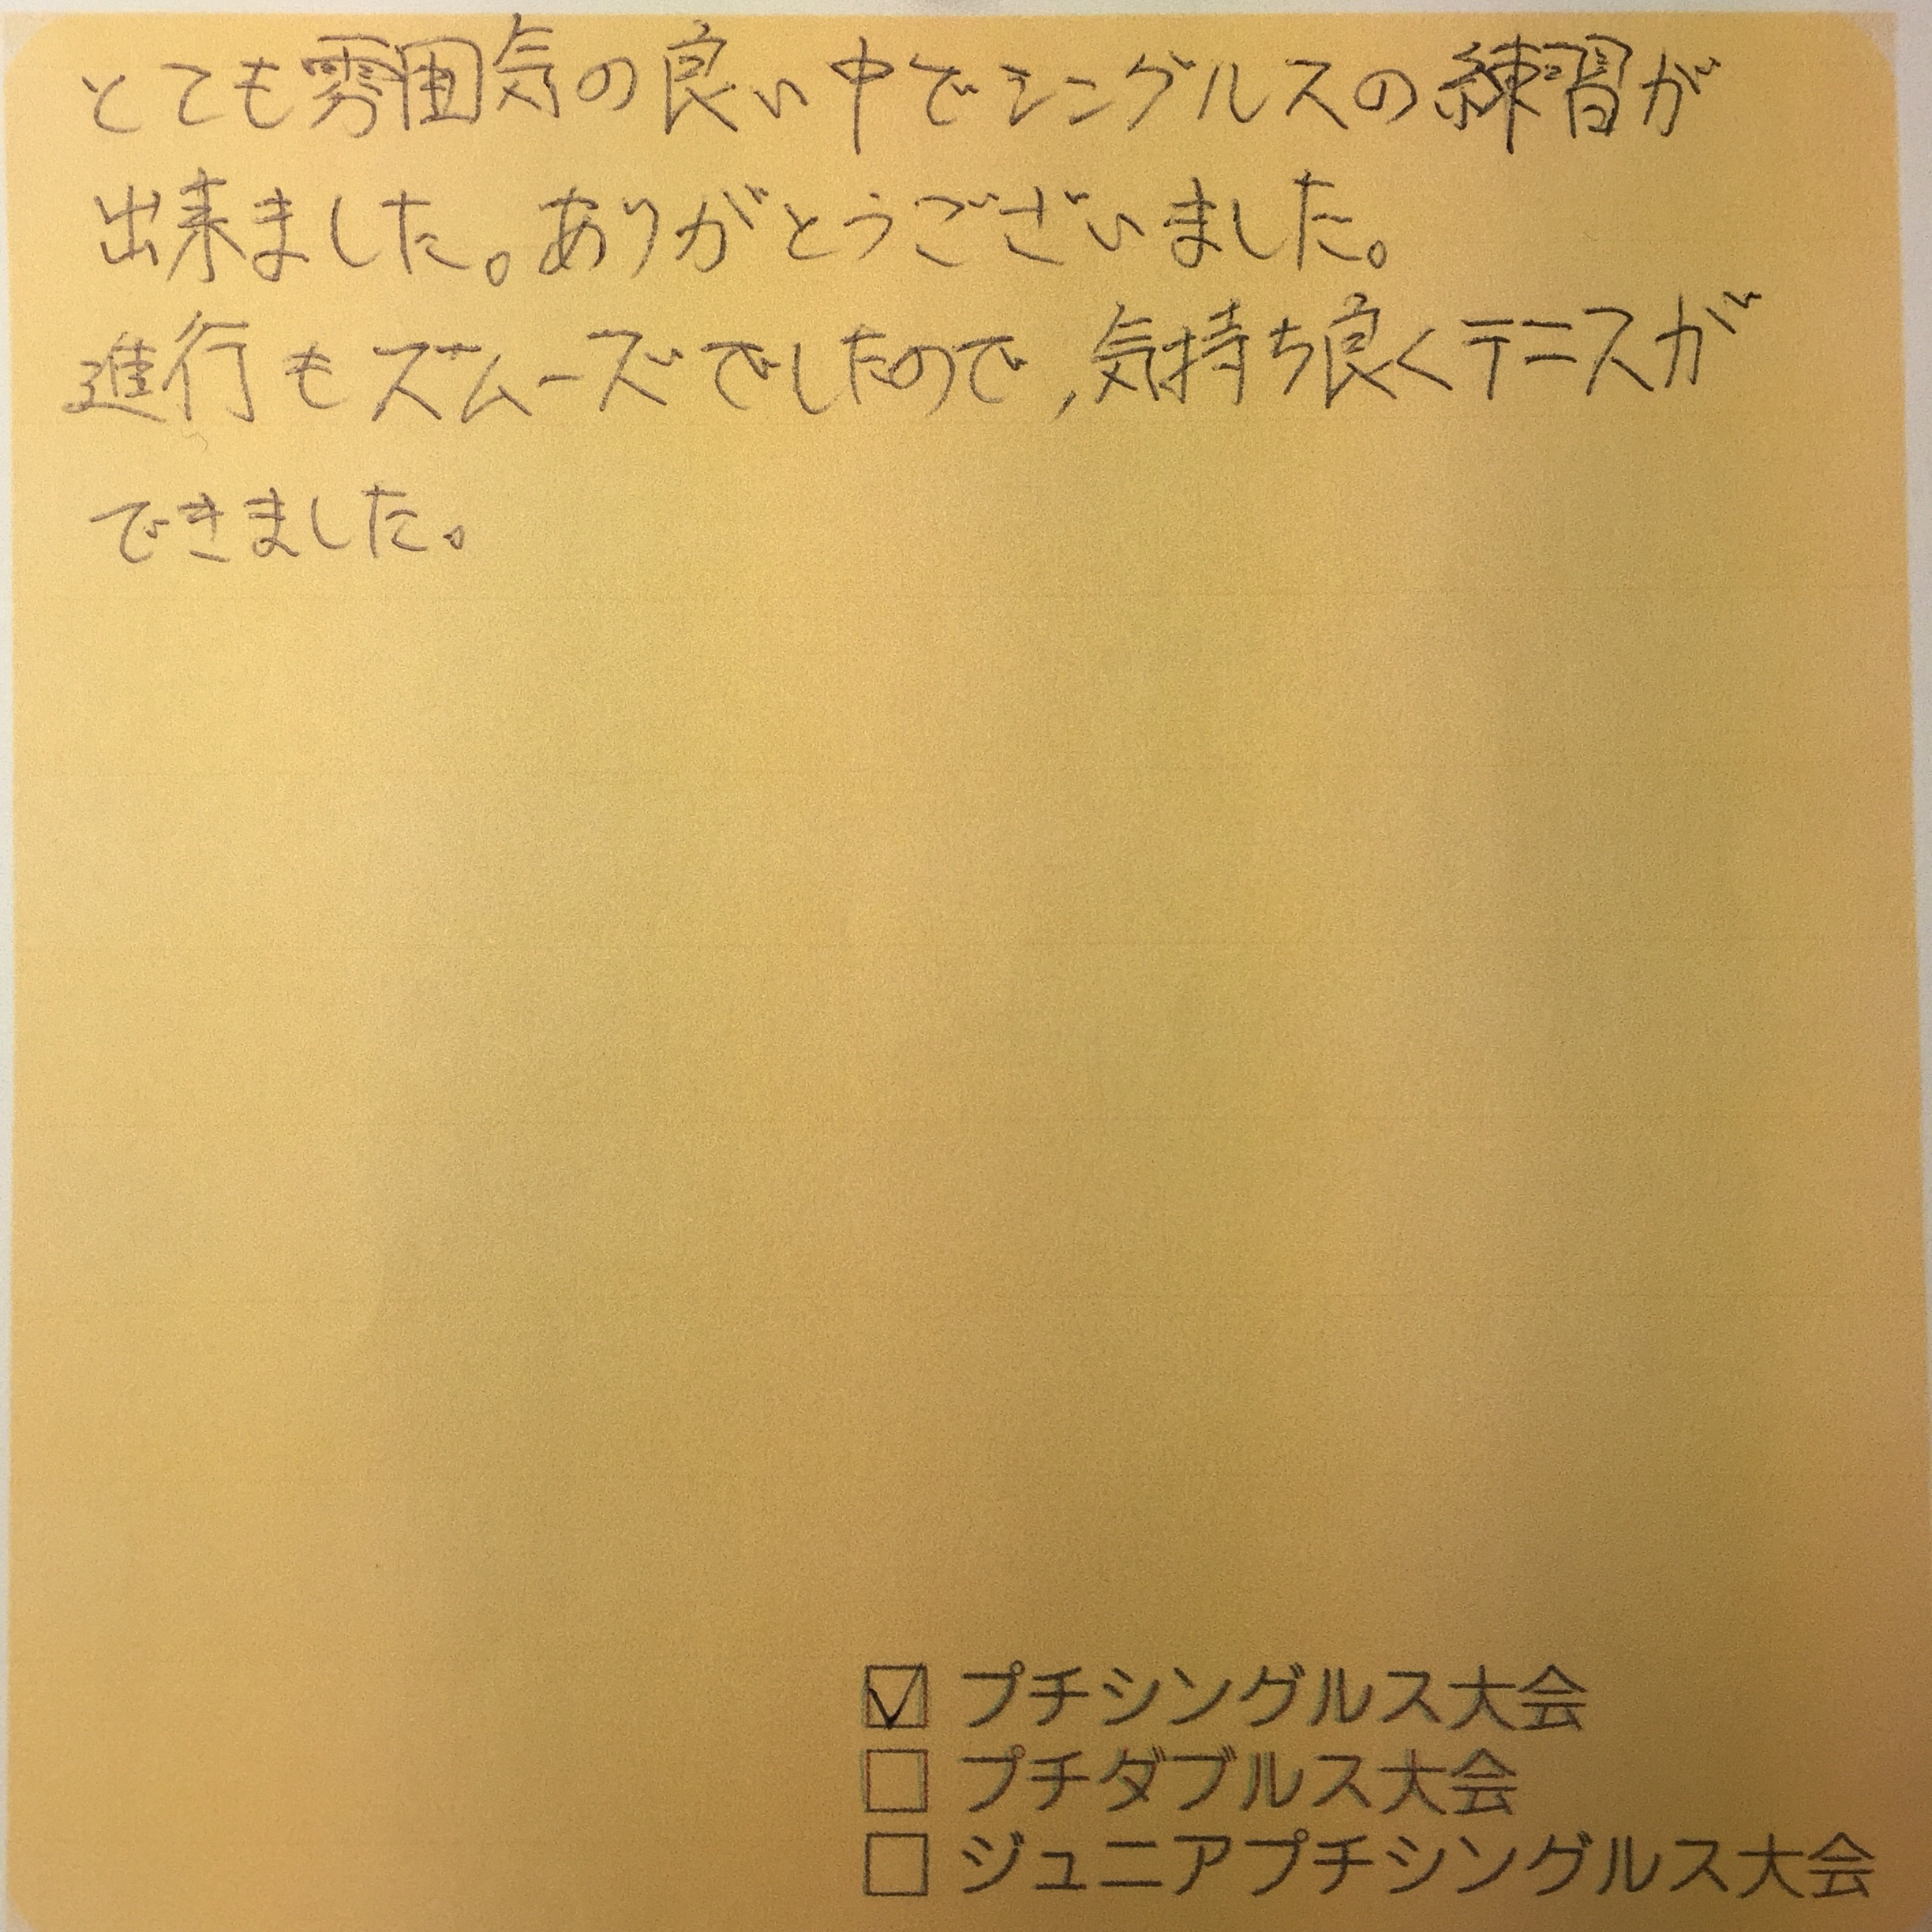 とても雰囲気の良い中でシングルスの練習が
出来ました。ありがとうございました。
進行もスムーズでしたので、気持ち良くテニスが
できました。
☑ プチシングルス大会
☐ プチダブルス大会
☐ ジュニアプチシングルス大会